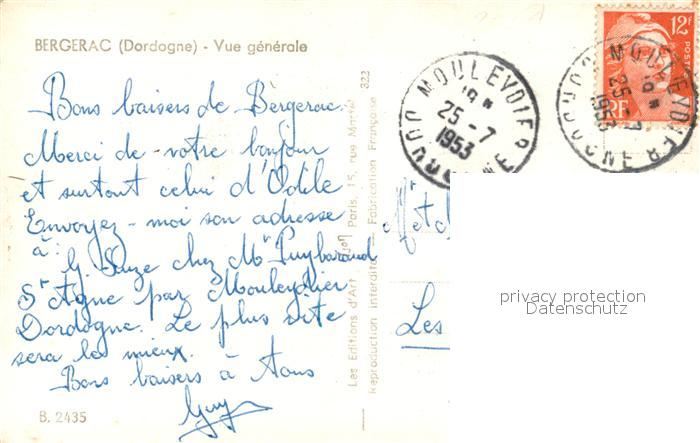 BERGERAC (Dordogne) - Vue générale
Bons baisers de Bergerac.
Merci de votre bonjour
et surtout celui d'Odile
Envoyez-moi son adresse
à :
G. Suze chez Mr Puybaraud
St Agne par Mouleydier
Dordogne. Le plus vite
sera le mieux.
Bons baisers à tous
Guy
B. 2435
Les Editions d'Art Paris, 15, rue Martel 322
Reproduction interdite Fabrication Française
MOULEYDIER
25-7
1953
DORDOGNE
12F
POSTES
RF
MOULEYDIER
25-7
1953
DORDOGNE
Mr et
Les
privacy protection
Datenschutz